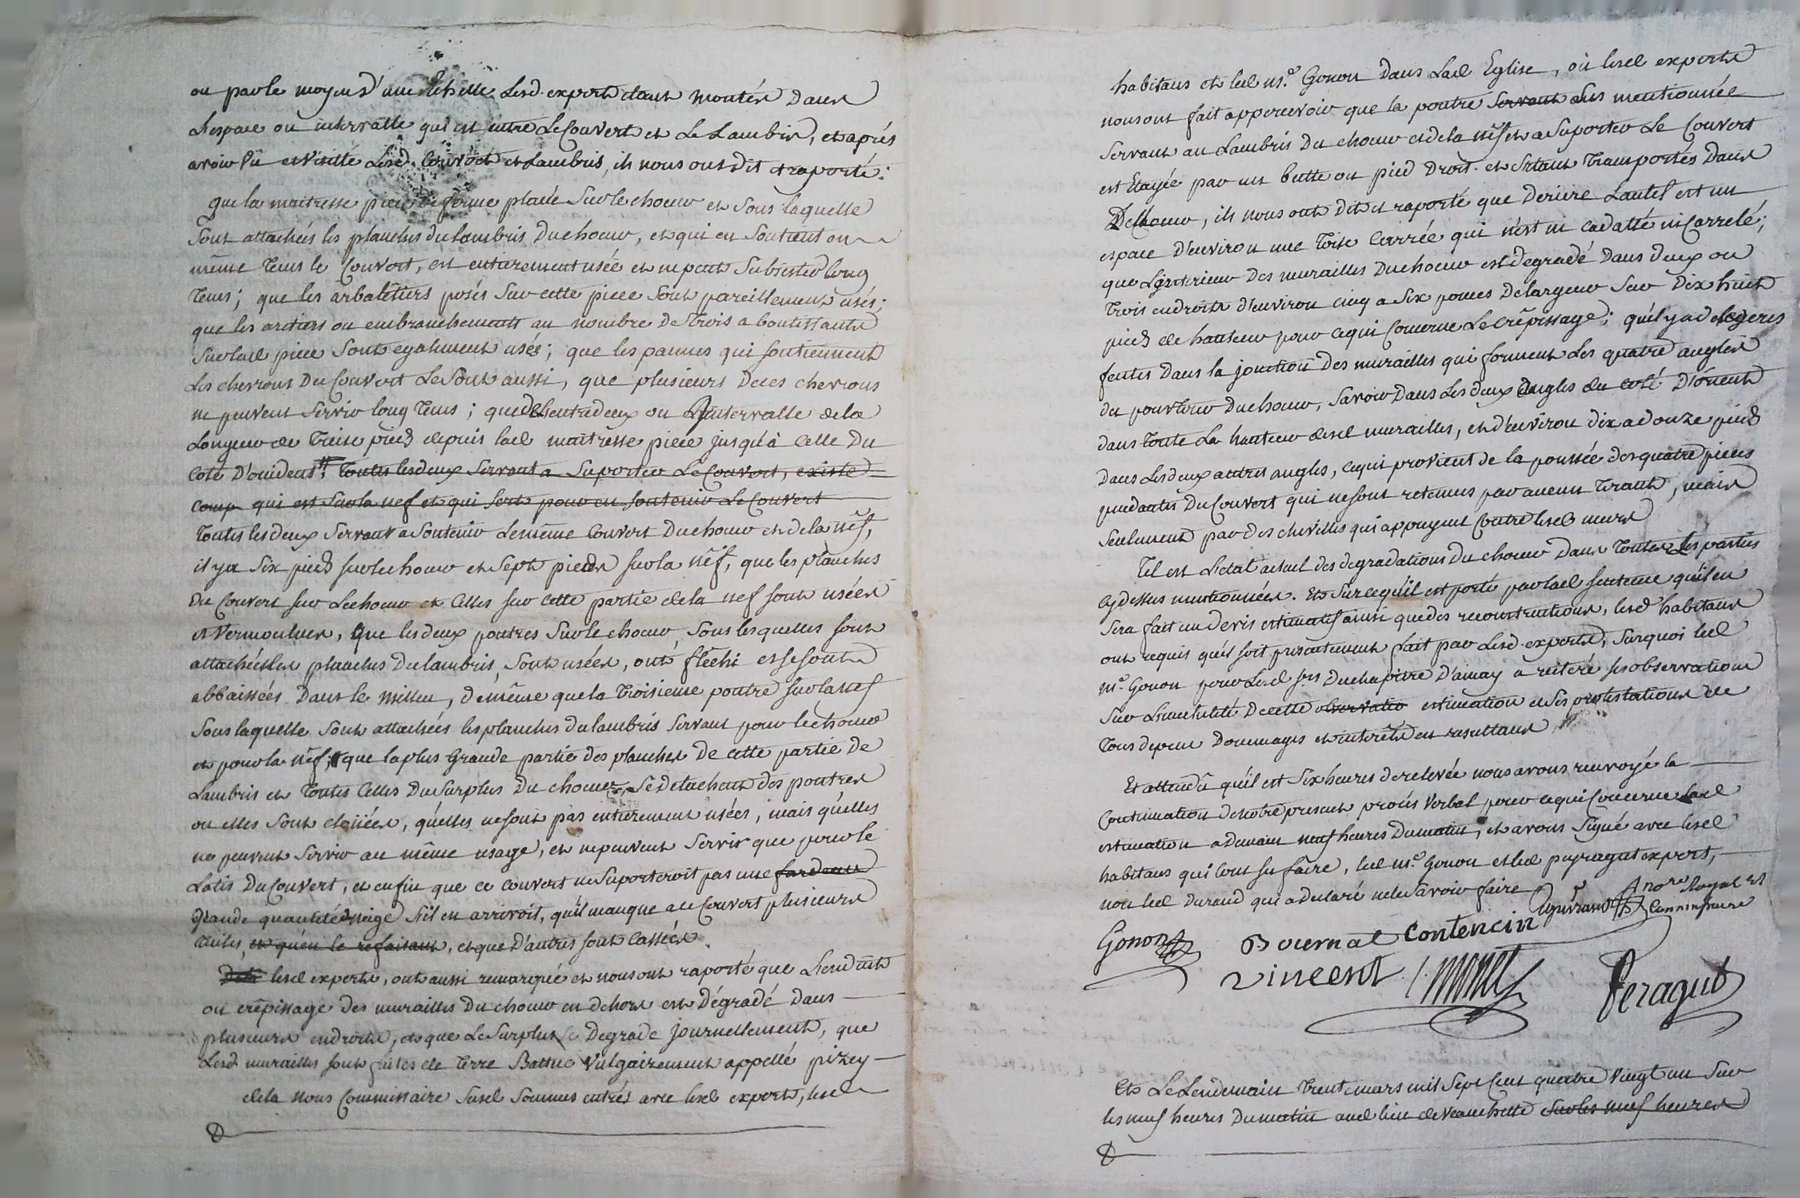 ou par le moyen d'une Echelle Lesd. experts étant montés dans
L'espace ou intervalle qui est entre Le Couvert et Le Lambris, et après
avoir vû et visitté Lesd. Couvert et Lambris, ils nous ont dit et raporté:
que la maitresse piece de ferme placée sur le choeur et sous laquelle
sont attachées les planches du lambris du choeur, et qui en soutient en
même tems le Couvert, est entierement usée et ne peut subsister long
tems; que les arbalêtiers posés sur cette piece sont pareillement usés;
que les arêtiers ou embranchements au nombre de trois aboutissants
sur lad. piece sont egalement usés; que les pannes qui soutiennent
Les chevrons du Couvert Le sont aussi, que plusieurs de ces chevrons
ne peuvent servir long tems; que de l'entredeux ou L'intervalle de la
Longueur de treise pieds depuis lad. maitresse piece jusqu'à celle du
coté d'occident toutes les deux servant a suporter Le Couvert, existe
comp qui est sur la nef et qui sert pour en soutenir Le Couvert
toutes les deux servant a soutenir le même Couvert du choeur et de la nêf,
il y a six pieds sur le choeur et sept pieds sur la nêf, que les planches
du Couvert sur Le choeur et celles sur cette partie de la nef sont usées
et vermoulues, que les deux poutres sur le choeur, sous lesquelles sont
attachées les planches du lambris, sont usées, ont flêchi et se sont
abbaissées dans le milieu, de même que la troisieme poutre sur la nef
sous laquelle sont attachés les planches du lambris servant pour le choeur
et pour la nêf, que la plus grande partie des planches de cette partie de
Lambris et toutes celles du surplus du choeur, se detachent des poutres
ou elles sont cloüées, qu'elles ne sont pas entierement usées, mais qu'elles
ne peuvent servir au même usage, et ne peuvent servir que pour le
Latis du Couvert, et enfin que ce couvert ne suporteroit pas une fardeau
grande quantité de neige s'il en arrivoit, qu'il manque a ce Couvert plusieurs
tuiles, et qu'en le refaisant, et que d'autres sont cassées.
lesd. experts, ont aussi remarqué et nous ont raporté que L'enduit
ou crêpissage des murailles du choeur en dehors est dégradé dans
plusieurs endroits, et que Le surplus se degrade journellement, que
Lesd. murailles sont faites de terre Battue vulgairement appellé pizey
de la nous Commissaire susd. sommes entrés avec lesd. experts, lesd.
habitans et led. m.e Gonon dans Lad. Eglise, où lesd. experts
nous ont fait appercevoir que la poutre servant sus mentionnée
servant au Lambris du choeur et de la nêf et a suporter Le Couvert
est Etayée par un butte ou pied droit. et s'etant transportés dans
Le choeur, ils nous ont dit et raporté que deriere L'autel est un
espace d'environ une toise carrée qui n'est ni cadatté ni carrelé;
que L'interieur des murailles du choeur est degradé dans deux ou
trois endroits d'environ cinq a six pouces de largeur sur dix huit
pieds de hauteur pour ce qui concerne Le crêpissage; qu'il y a de legeres
fentes dans la jonction des murailles qui forment Les quatre angles
du pourtour du choeur, savoir dans Les deux angles du coté d'orient
dans toute La hauteur desd. murailles, et d'environ dix a douze pieds
dans Les deux autres angles, ce qui provient de la poussée des quatre pieces
pendantes du Couvert qui ne sont retenus par aucun tirant, mais
seulement par des chevilles qui appuyent contre lesd. murs
Tel est L'etat actuel des degradations du choeur dans toutes Les parties
cy dessus mentionnées. Et sur ce qu'il est porté par lad. sentence qu'il en
sera fait un devis estimatif ainsi que des reconstructions, lesd. habitans
ont requis qu'il soit presentement fait par Lesd. experts, surquoi led.
m.e Gonon pour Lesd. srs du chapitre d'ainay a réiteré ses observations
sur L'inutilité de cette observatio estimation et ses protestations de
tous depens dommages et interêts en resultans
Et attendû qu'il est six heures de relevée nous avons renvoyé la
Continuation de notre present procès verbal pour ce qui concerne Lad.
estimation a demain neuf heures du matin, et avons signé avec lesd.
habitans qui l'ont su faire, led. m.e Gonon et led. peyragut expert,
non led. Durand qui a declaré ne le savoir faire
Gonon Bournat Contencin
no.re Royal et
Commissaire
vincent monet Peragut
Et Le Lendemain trente mars mil sept cent quatre vingt un sur
les neuf heures du matin aud. lieu de veauchette sur les neuf heures